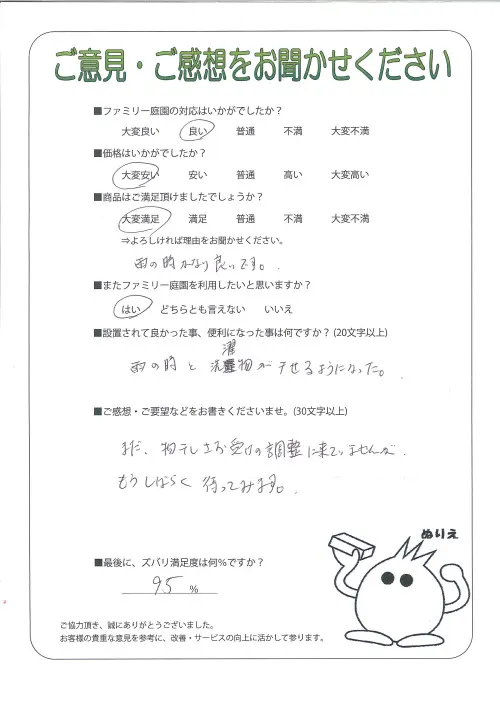 ご意見・ご感想をお聞かせください
■ファミリー庭園の対応はいかがでしたか？
大変良い 良い 普通 不満 大変不満
■価格はいかがでしたか？
大変安い 安い 普通 高い 大変高い
■商品はご満足頂けましたでしょうか？
大変満足 満足 普通 不満 大変不満
⇒よろしければ理由をお聞かせください。
雨の時かなり良いです。
■またファミリー庭園を利用したいと思いますか？
はい どちらとも言えない いいえ
■設置されて良かった事、便利になった事は何ですか？(20文字以上)
雨の時と洗濯物が干せるようになった。
■ご感想・ご要望などをお書きくださいませ。(30文字以上)
まだ、物干しさお受けの調整に来ていませんが、
もうしばらく待ってみます。
ぬりえ
■最後に、ズバリ満足度は何％ですか？
95 %
ご協力頂き、誠にありがとうございました。
お客様の貴重な意見を参考に、改善・サービスの向上に活かして参ります。